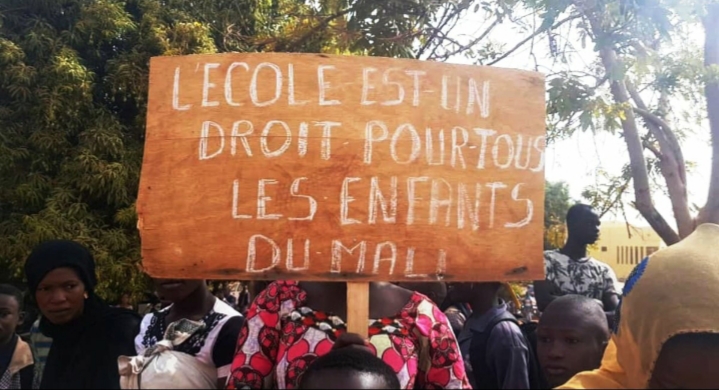 L'ÉCOLE EST UN
DROIT POUR TOUS
LES ENFANTS
DU MALI